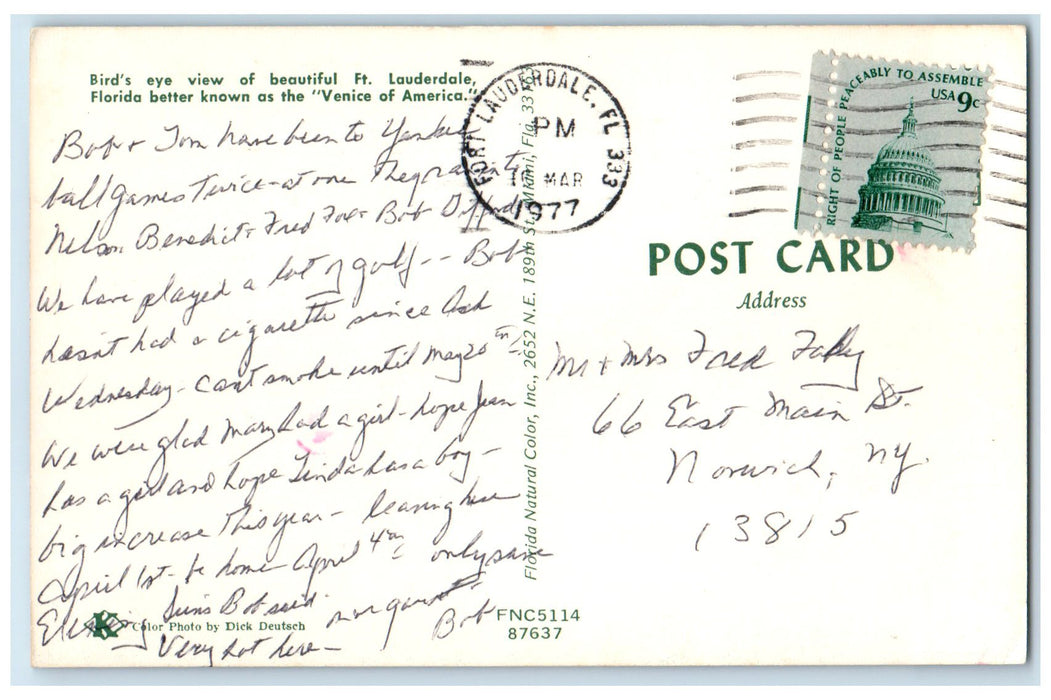 Bird's eye view of beautiful Ft. Lauderdale,
Florida better known as the "Venice of America."
Bob + Tom have been to Yankee
ball games twice - at one they
Nelson Benedict + Fred Bob
We have played a lot of golf -- Bob
hasnt had a cigarette since Ash
Wednesday - cant smoke until May 20th
We were glad Mary had a girl - hope Jean
has a girl and hope Linda has a boy -
big increase this year - leaving here
April 1st - be home April 4th only
Bob said
Very hot here -
Margaret +
Bob
Color Photo by Dick Deutsch
Florida Natural Color, Inc., 2652 N.E. 189th St., Miami, Fla. 33
FNC5114
87637
FORT LAUDERDALE, FL 333
PM
MAR
1977
RIGHT OF PEOPLE PEACEABLY TO ASSEMBLE
USA 9c
POST CARD
Address
Mr + Mrs Fred
66 East Main St.
Norwich, NY.
13815